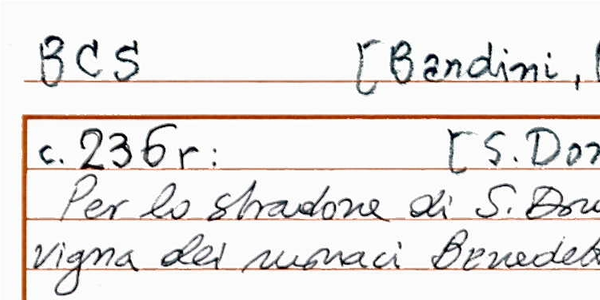 BCS [Bandini,
c. 236r: [S. Don
Per lo stradone di S. Don
vigna dei monaci Benedet